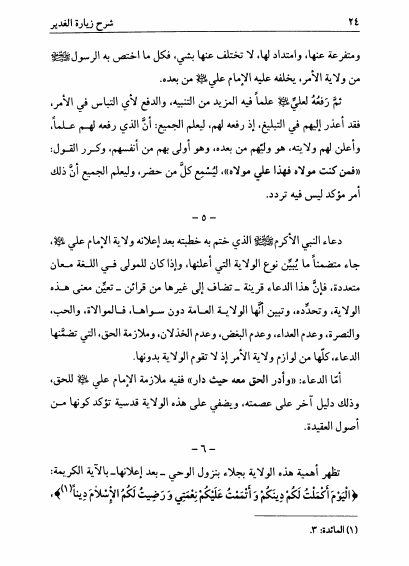 ٢٤ شرح زيارة الغدير
ومتفرعة عنها، وامتداد لها، لا تختلف عنها بشي، فكل ما اختص به الرسول ﷺ
من ولاية الأمر، يخلفه عليه الإمام علي من بعده.
ثمَّ رَفعُهُ لعليّ علماً فيه المزيد من التنبيه، والدفع لأي التباس في الأمر،
فقد أعذر إليهم في التبليغ، إذ رفعه لهم، ليعلم الجميع: أنَّ الذي رفعه لهم علماً،
وأعلن لهم ولايته، هو وليّهم من بعده، وهو أولى بهم من أنفسهم، وكرر القول:
«فمن كنت مولاه فهذا علي مولاه»، ليُسْمِع كلَّ من حضر، وليعلم الجميع أنَّ ذلك
أمر مؤكد ليس فيه تردد.
- ٥ -
دعاء النبي الأكرم ﷺ الذي ختم به خطبته بعد إعلانه ولاية الإمام علي،
جاء متضمناً ما يُبيِّن نوع الولاية التي أعلنها، وإذا كان للمولى في اللغة معان
متعددة، فإنَّ هذا الدعاء قرينة ـ تضاف إلى غيرها من قرائن ـ تعيّن معنى هذه
الولاية، وتحدِّده، وتبين أنَّها الولاية العامة دون سواها، فالموالاة، والحب،
والنصرة، وعدم العداء، وعدم البغض، وعدم الخذلان، وملازمة الحق، التي تضمَّنها
الدعاء، كلّها من لوازم ولاية الأمر إذ لا تقوم الولاية بدونها.
أمّا الدعاء: «وأدر الحق معه حيث دار» ففيه ملازمة الإمام علي للحق،
وذلك دليل آخر على عصمته، ويضفي على هذه الولاية قدسية تؤكد كونها من
أصول العقيدة.
- ٦ -
تظهر أهمية هذه الولاية بجلاء بنزول الوحي ـ بعد إعلانها ـ بالآية الكريمة:
﴿الْيَوْمَ أَكْمَلْتُ لَكُمْ دِينَكُمْ وَأَتْمَمْتُ عَلَيْكُمْ نِعْمَتِي وَرَضِيتُ لَكُمُ الْإِسْلَامَ دِيناً(١)﴾،
(١) المائدة: ٣.